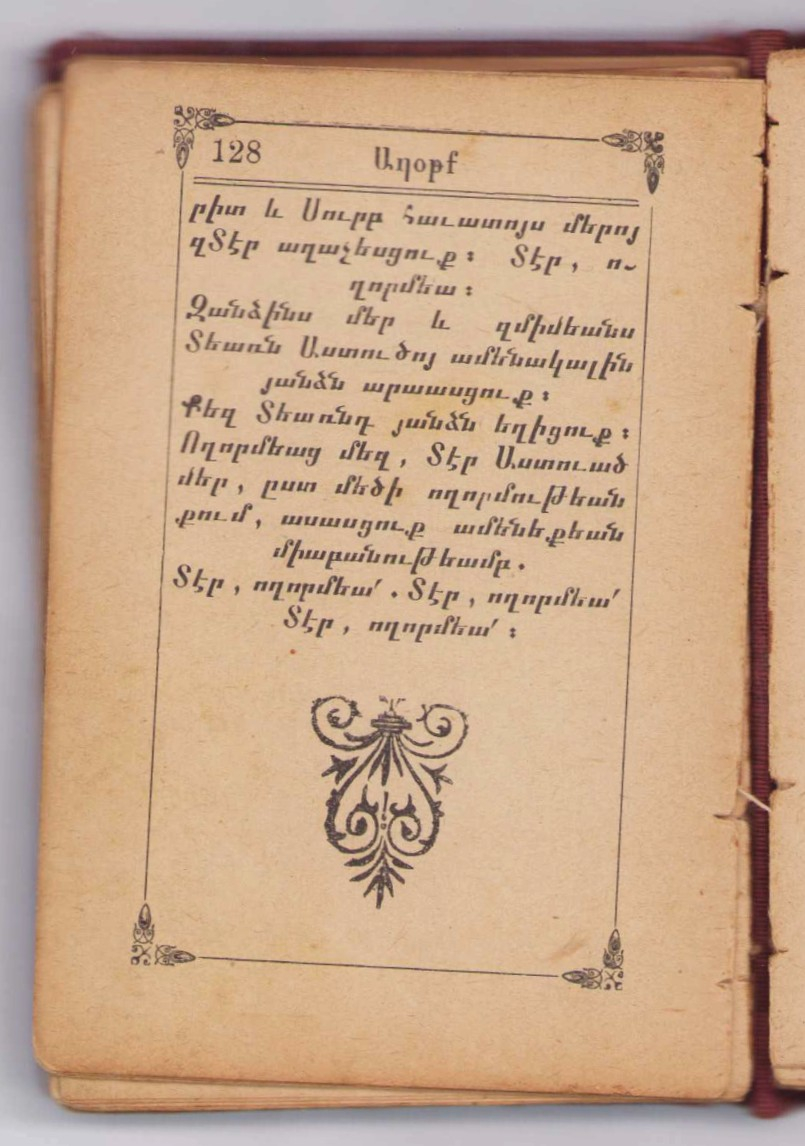 128
Աղօթք
րիտ և Սուրբ հաւատոյս մերոյ
զՏէր աղաչեսցուք։ Տէր, ո֊
ղորմեա։
Զանձինս մեր և զմիմեանս
Տեառն Աստուծոյ ամենակալին
յանձն արասացուք։
Քեզ Տեառնդ յանձն եղիցուք։
Ողորմեաց մեզ, Տէր Աստուած
մեր, ըստ մեծի ողորմութեան
քում, ասասցուք ամենեքեան
միաբանութեամբ.
Տէր, ողորմեա՛. Տէր, ողորմեա՛
Տէր, ողորմեա՛։